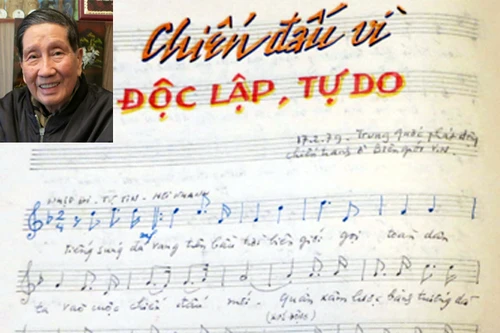 Chiến đấu vì
ĐỘC LẬP, TỰ DO
17.2.79. Trung Quốc phát động
chiến tranh ở Biên giới V.N.
NHỊP ĐI - TỰ TIN - HƠI NHANH
2/4
mf
tiếng súng đã vang trên bầu trời biên giới gọi toàn dân
ta vào cuộc chiến đấu mới. Quân xâm lược bành trướng dã